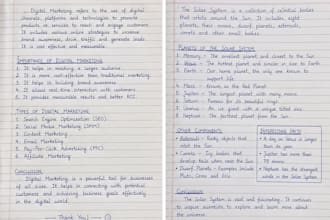 Digital Marketing refers to the use of digital
channels, platforms and technologies to promote
products or services to reach and engage customers.
It includes various online strategies to increase
brand awareness, drive traffic and generate leads.
It is cost effective and measurable.
IMPORTANCE OF DIGITAL MARKETING
1. It helps in reaching a larger audience.
2. It is more cost-effective than traditional marketing.
3. It helps in building brand awareness.
4. It allows real-time interaction with customers.
5. It provides measurable results and better ROI.
TYPES OF DIGITAL MARKETING
1. Search Engine Optimization (SEO)
2. Social Media Marketing (SMM)
3. Content Marketing
4. Email Marketing
5. Pay-Per-Click Advertising (PPC)
6. Affiliate Marketing
CONCLUSION
Digital Marketing is a powerful tool for businesses
of all sizes. It helps in connecting with potential
customers and achieving business goals effectively
in the digital world.
Thank You!
The Solar System is a collection of celestial bodies
that orbits around the Sun. It includes eight
planets, their moons, dwarf planets, asteroids,
comets and other small bodies.
PLANETS OF THE SOLAR SYSTEM
1. Mercury - The smallest planet and closest to the Sun.
2. Venus - The hottest planet and similar in size to Earth.
3. Earth - Our home planet, the only one known to
support life.
4. Mars - Known as the Red Planet.
5. Jupiter - The largest planet with many moons.
6. Saturn - Famous for its beautiful rings.
7. Uranus - An ice giant with a unique tilted axis.
8. Neptune - The farthest planet from the Sun.
OTHER COMPONENTS
• Asteroids - Rocky objects that
orbit the Sun.
• Comets - Icy bodies that
develop tails when near the Sun.
• Dwarf Planets - Examples include
Pluto, Ceres and Eris.
INTERESTING FACTS
• A day on Venus is longer
than its year.
• Jupiter has more than
79 moons.
• Neptune has the strongest
winds in the Solar System.
CONCLUSION
The Solar System is vast and fascinating. It continues
to inspire scientists to explore and learn more about
the universe.